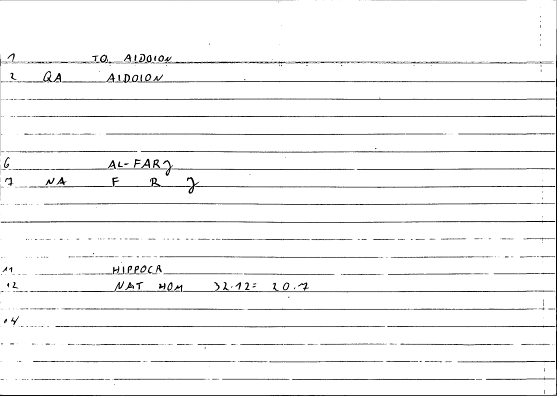 1 TO AIDOION
2 QA AIDOION
6 AL-FARJ
7 NA F R J
11 HIPPOCR
12 NAT HOM 32.12= 20.7
14